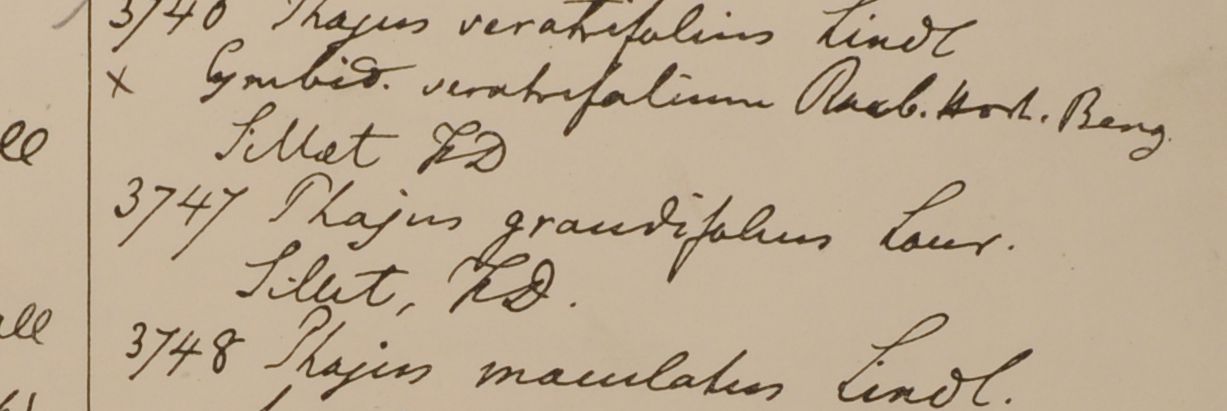 3746 Phajus veratrifolius Lindl
x Cymbid. veratrifolium Roxb. Hort. Beng.
ll
Sillet FD
3747 Phajus grandifolius Lour.
Sillet, FD.
ll
3748 Phajus maculatus Lindl.